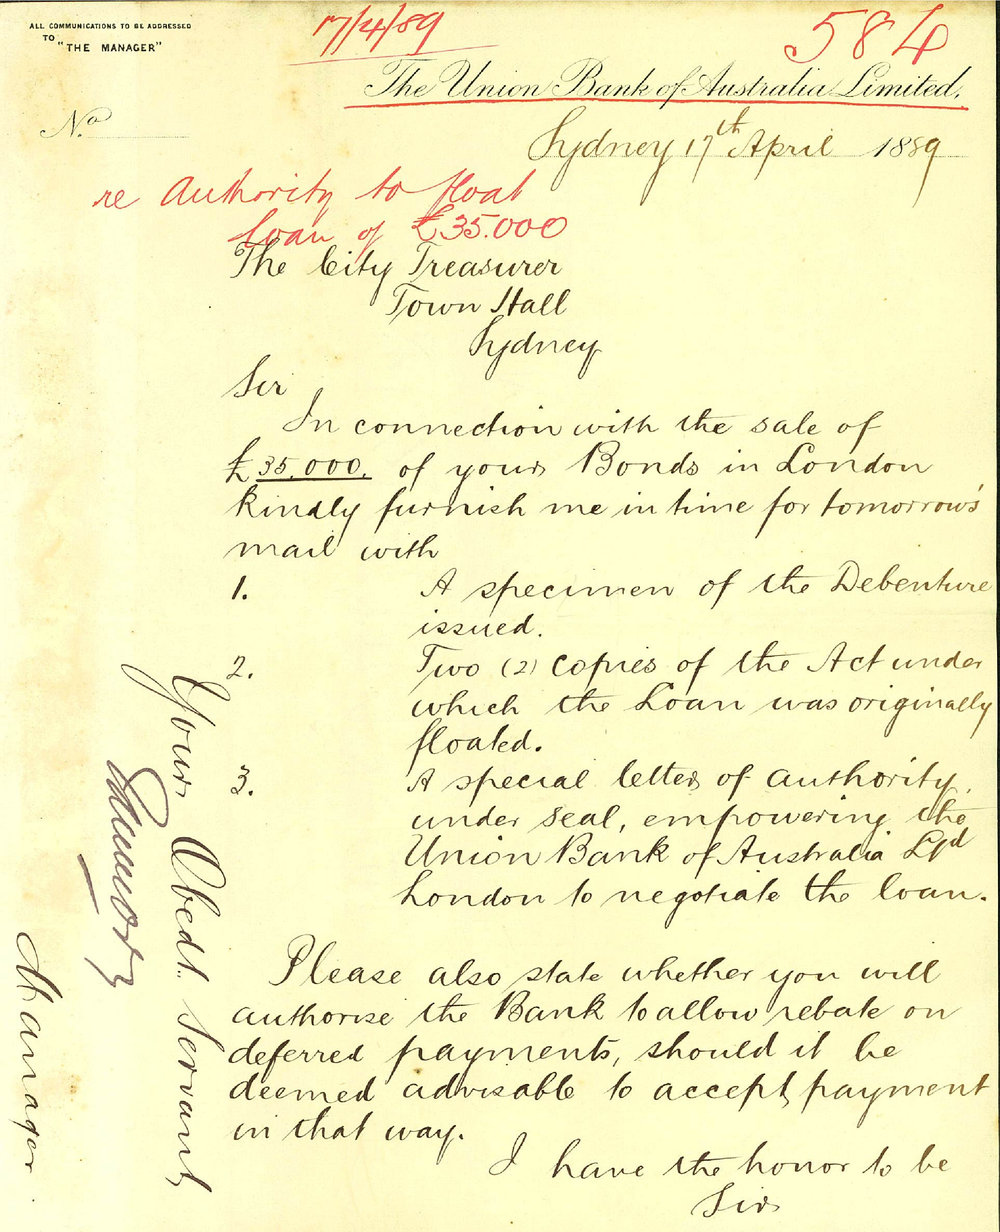 ALL COMMUNICATIONS TO BE ADDRESSED
TO "THE MANAGER"
17/4/89
584
The Union Bank of Australia Limited.
No.
Sydney 17th April 1889
re Authority to float
loan of £35.000
The City Treasurer
Town Hall
Sydney
Sir
In connection with the sale of
£35,000. of your Bonds in London
kindly furnish me in time for tomorrow's
mail with
1. A specimen of the Debenture
issued.
2. Two (2) copies of the Act under
which the Loan was originally
floated.
3. A special letter of authority,
under seal, empowering the
Union Bank of Australia Ltd
London to negotiate the loan.
Please also state whether you will
authorise the Bank to allow rebate on
deferred payments, should it be
deemed advisable to accept payment
in that way.
I have the honor to be
Sir
Your Obedt. Servant
Manager